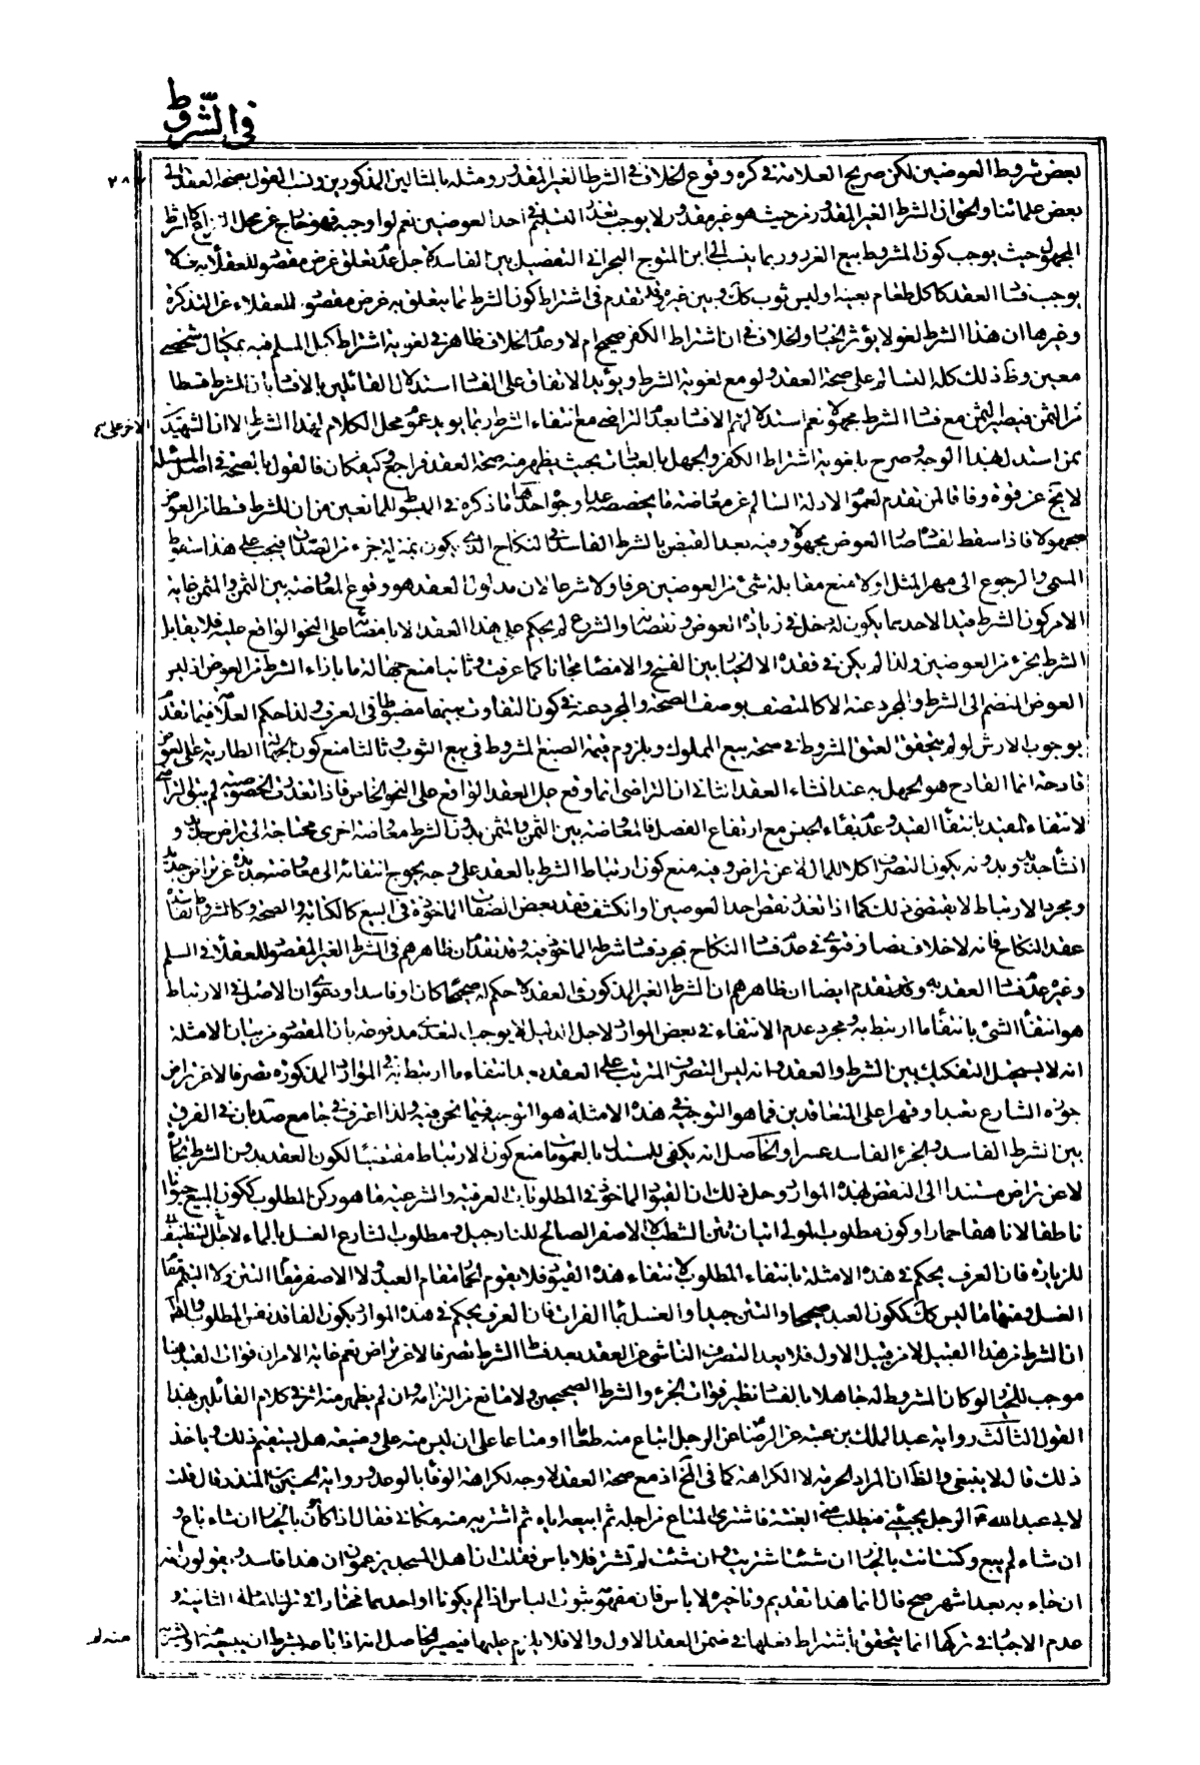 في الشروط
٢٨٧
بعض شروط العوضين لكن صريح العلامة في كره وقوع الخلاف في الشرط الغير المقدور ومثله بالمثالين المذكورين ونسب القول بصحة العقد الى
بعض علمائنا والحق ان الشرط الغير المقدور من حيث هو غير مقدور لا يوجب تعذر التسليم في احد العوضين نعم لو اوجبه فهو خارج عن محل النزاع كالشرط
المجهول حيث يوجب كون المشروط بيع الغرر وربما ينسب الى ابن المتوج البحراني التفصيل بين الفاسد لاجل عدم تعلق غرض مقصود للعقلاء به فلا
يوجب فساد العقد كاكل طعام بعينه او لبس ثوب كك وبين غيره وقد تقدم في اشتراط كون الشرط مما يتعلق به غرض مقصود للعقلاء عن التذكرة
وغيرها ان هذا الشرط لغو لا يؤثر الخيار والخلاف في ان اشتراط الكفر صحيح ام لا وعدم الخلاف ظاهرا في لغوية اشتراط كيل المسلم فيه بمكيال شخصي
معين وظ ذلك كله التسالم على صحة العقد ولو مع لغوية الشرط ويؤيد الاتفاق على الفساد استدلال القائلين بالافساد بان للشرط قسطا
من الثمن فيصير الثمن مع فساد الشرط مجهولا نعم استدلالهم الاخر على بعدم التراضي مع انتفاء الشرط ربما يؤيد عموم محل الكلام لهذا الشرط الا ان الشهيد
ممن استدل بهذا الوجه وصرح بلغوية اشتراط الكفر والجهل بالعبادات بحيث يظهر منه صحة العقد فراجع وكيف كان فالقول بالصحة في اصل المسئلة
لا يخ عن قوة وفاقا لمن تقدم لعموم الادلة السالم عن معارضة ما يخصصه عدا وجوه احدها ما ذكره في المبسوط للمانعين من ان للشرط قسطا من العوض
مجهولا فاذا سقط لفساده صار العوض مجهولا وفيه بعد النقض بالشرط الفاسد في النكاح الذي يكون بمنزلة جزء من الصداق فيجب على هذا سقوط
المسمى والرجوع الى مهر المثل اولا منع مقابلة شيء من العوضين عرفا ولا شرعا لان مدلول العقد هو وقوع المعاوضة بين الثمن والمثمن غاية
الامر كون الشرط قيدا لاحدهما يكون له دخل في زيادة العوض ونقصانه والشرع لم يحكم على هذا العقد الا بامضائه على النحو الواقع عليه فلا يقابل
الشرط بجزء من العوضين ولذا لم يكن في فقده الا الخيار بين الفسخ والامضاء مجانا كما عرفت وثانيا منع جهالة ما بازاء الشرط من العوض اذ ليس
العوض المنضم الى الشرط والمجرد عنه الا كالمتصف بوصف الصحة والمجرد عنه في كون التفاوت بينهما مضبوطا في العرف ولذا حكم العلامة فيما تقدم
بوجوب الارش لو لم يتحقق العتق المشروط في صحة بيع المملوك وبلزوم قيمة الصبغ المشروط في بيع الثوب وثالثا منع كون الجهالة الطارية على العوض
قادحة انما القادح هو الجهل به عند انشاء العقد الثاني ان التراضي انما وقع على العقد الواقع على النحو الخاص فاذا تعذرت الخصوصية لم يبق التراضي
لانتفاء المقيد بانتفاء القيد وعدم بقاء الجنس مع ارتفاع الفصل فالمعاوضة بين الثمن والمثمن بدون الشرط معاوضة اخرى محتاجة الى تراض جديد و
انشاء جديد وبدونه يكون التصرف اكلا للمال لا عن تراض وفيه منع كون ارتباط الشرط بالعقد على وجه يحوج انتفائه الى معاوضة جديدة عن تراض جديد
ومجرد الارتباط لا يقتضي ذلك كما اذا تعذر بعض احد العوضين او انكشف فقد بعض الصفات الماخوذة في البيع كالكتابة والصحة وكالشروط الفاسدة في
عقد النكاح فانه لا خلاف نصا وفتوى في عدم فساد النكاح بمجرد فساد شرطه الماخوذ فيه وقد تقدم ان ظاهرهم في الشرط الغير المقصود للعقلاء في السلم
وغيره عدم فساد العقد به وقد تقدم ايضا ان ظاهرهم ان الشرط الغير المذكور في العقد لا حكم له صحيحا كان او فاسدا ودعوى ان الاصل في الارتباط
هو انتفاء الشيء بانتفاء ما ارتبط به ومجرد عدم الانتفاء في بعض الموارد لاجل الدليل لا يوجب التعدي مدفوعة بان المقصود من بيان الامثلة
انه لا يستحيل التفكيك بين الشرط والعقد وانه ليس التصرف المترتب على العقد بعد انتفاء ما ارتبط به في الموارد المذكورة تصرفا لا عن تراض
جوزه الشارع تعبدا وقهرا على المتعاقدين فما هو التوجيه في هذه الامثلة هو التوجيه فيما نحن فيه ولذا اعترف في جامع المقاصد بان في الفرق
بين الشرط الفاسد والجزء الفاسد عسرا والحاصل انه يكفي للمستدل بالعمومات منع كون الارتباط مقتضيا لكون العقد بدون الشرط تجارة
لا عن تراض مستندا الى النقض بهذه الموارد وحل ذلك ان القيود الماخوذة في المطلوبات العرفية والشرعية منها ما هو ركن المطلوب ككون المبيع حيوانا
ناطقا لا ناهقا حمارا وكون مطلوب المولى اتيان تتن الشطب لا الاصفر الصالح للنارجيل ومطلوب الشارع الغسل بالماء لاجل التنظيف
للزيارة فان العرف يحكم في هذه الامثلة بانتفاء المطلوب لانتفاء هذه القيود فلا يقوم الحمار مقام العبد ولا الاصفر مقام التتن ولا التيمم مقام
الغسل ومنها ما ليس كك ككون العبد صحيحا والتتن جيدا والغسل بماء الفرات فان العرف يحكم في هذه الموارد بكون الفاقد نفس المطلوب والظاهر
ان الشرط من هذا القبيل لا من قبيل الاول فلا يعد التصرف الناشي عن العقد بعد فساد الشرط تصرفا لا عن تراض نعم غاية الامر ان فوات القيد هنا
موجب للخيار لو كان المشروط له جاهلا بالفساد نظير فوات الجزء والشرط الصحيحين ولا مانع من التزامه وان لم يظهر منه اثر في كلام القائلين بهذا
القول الثالث رواية عبد الملك بن عتبة عن الرضا عن الرجل ابتاع منه طعاما او متاعا على ان ليس منه على وضيعة هل يستقيم ذلك وما حد
ذلك قال لا ينبغي والظ ان المراد الحرمة لا الكراهة كما في المخ اذ مع صحة العقد لا وجه لكراهة الوفاء بالوعد ورواية الحسين بن المنذر قال قلت
لابي عبد الله الرجل يجيئني فيطلب مني العينة فاشتري المتاع من اجله ثم ابيعه اياه ثم اشتريه منه مكاني فقال اذا كان بالخيار ان شاء باع و
ان شاء لم يبع وكنت انت بالخيار ان شئت اشتريت وان شئت لم تشتر فلا باس فقلت ان اهل المسجد يزعمون ان هذا فاسد ويقولون انه
ان جاء به بعد اشهر صح قال انما هذا تقديم وتاخير لا باس فان مفهومه ثبوت الباس اذا لم يكونا او احدهما مختارا في ترك المعاملة الثانية و
عدم الاختيار في تركها انما يتحقق باشتراط فعلها في ضمن العقد الاول والا فلا يلزم عليهما فيصير الحاصل انه اذا باعه بشرط ان يبيعه منه او يشتريه